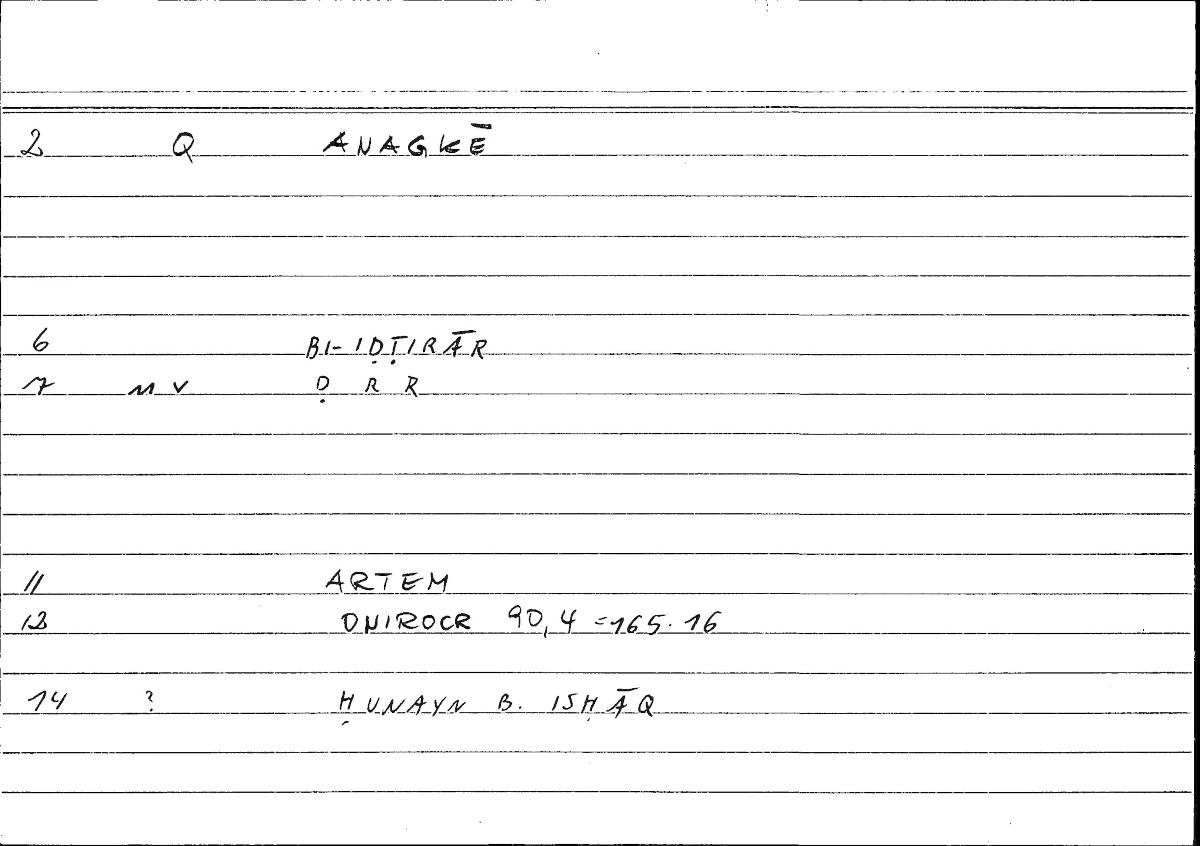 2 Q ANAGKĒ
6 BI-IḌṬIRĀR
7 MV Ḍ R R
11 ARTEM
12 ONIROCR 90,4 =165.16
14 ? ḤUNAYN B. ISḤĀQ